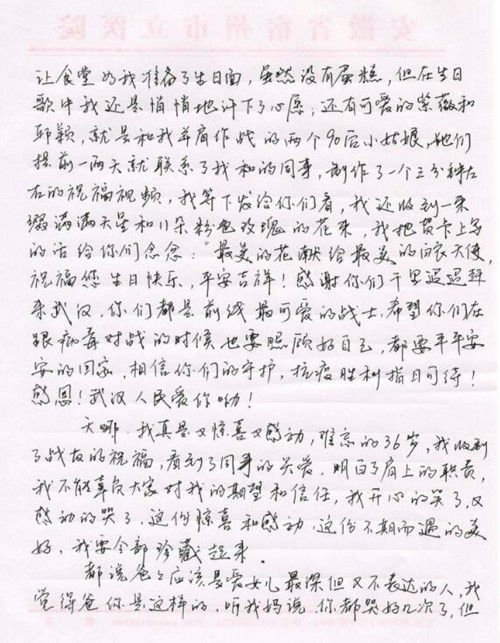 安徽省宿州市立医院
让食堂为我准备了生日面，虽然没有蛋糕，但在生日
歌中我还是悄悄地许下了心愿；还有可爱的紫薇和
邱颖，就是和我并肩作战的两个90后小姑娘，她们
提前一两天就联系了我和的同事，制作了一个三分钟左
右的祝福视频，我等下发给你们看，我还收到一束
缀满满天星和11朵粉色玫瑰的花束，我把贺卡上写
的话给你们念念："最美的花献给最美的白衣天使，
祝福您生日快乐，平安吉祥！感谢你们千里迢迢驰
来武汉，你们都是前线最可爱的战士，希望你们在
跟病毒对战的时候也要照顾好自己，都要平平安
安的回家，相信你们的守护，抗疫胜利指日可待！
感恩！武汉人民爱你呦！
天哪，我真是又惊喜又感动，难忘的36岁，我收到
了战友的祝福，看到了同事的关爱，明白了肩上的职责，
我不能辜负大家对我的期望和信任，我开心的笑了，又
感动的哭了，这份惊喜和感动，这份不期而遇的美
好，我要全部珍藏起来。
都说爸爸应该是爱女儿最深但又不表达的人，我
觉得爸你是这样的，听我妈说，你都哭好几次了，但